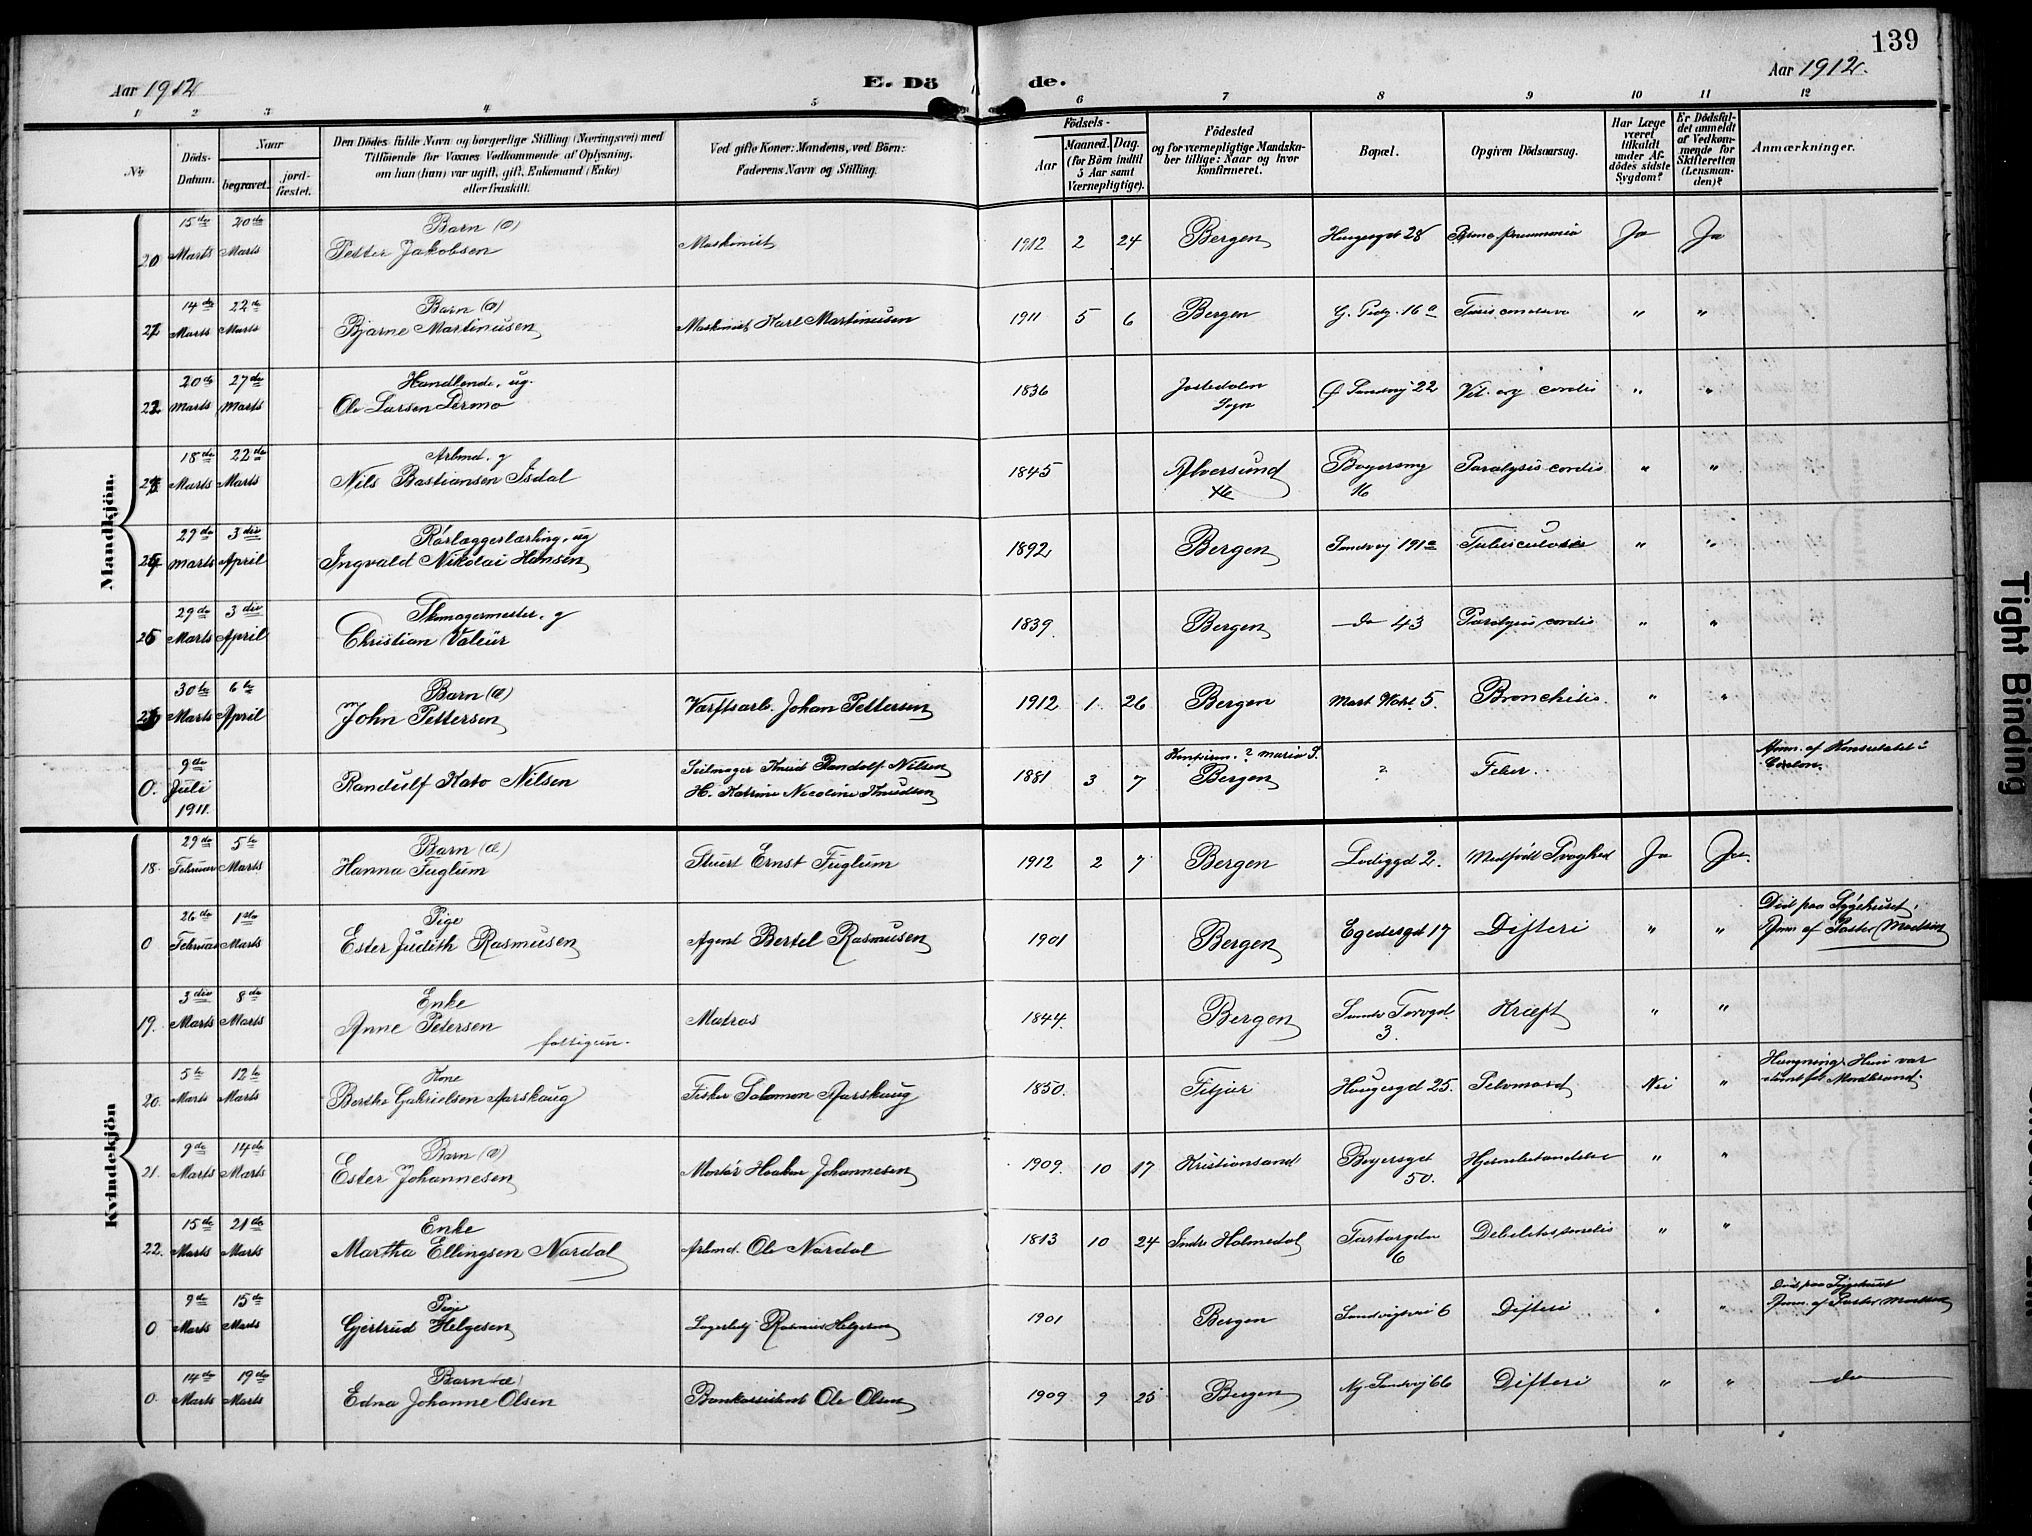 139
Aar 1912
E. Dö
de.
Aar 1912.
1 2 3 4 5 6 7 8 9 10 11 12
No
Döds-Datum.
Naar
begravet.
jord-fæstet.
Den Dödes fulde Navn og borgerlige Stilling (Næringsvei) med
Tilföiende for Voxnes Vedkommende af Oplysning,
om han (hun) var ugift, gift, Enkemand (Enke)
eller fraskilt.
Ved gifte Koner: Mandens, ved Börn:
Faderens Navn og Stilling.
Födsels-
Aar
Maaned. Dag.
(for Börn indtil
5 Aar samt
Værnepligtige).
Födested
og for værnepligtige Mandska-
ber tillige: Naar og hvor
konfirmeret.
Bopæl.
Opgiven Dödsaarsag.
Har Læge
været
tilkaldt
under Af-
dödes sidste
Sygdom?
Er Dödsfal-
det anmeldt
af Vedkom-
mende for
Skifteretten
(Lensman-
den)?
Anmærkninger.
Mandkjön.
15de 20de Barn (æ)
20 Marts Marts Petter Jakobsen Maskinist 1912 2 24 Bergen Haugesgt 28 pneumonia Ja Ja
14de 22de Barn (æ)
21 Marts Marts Bjarne Martinusen Maskinist Karl Martinusen 1911 5 6 Bergen 16a " "
20de 27de Handlende, ug.
22 Marts Marts Ole Larsen 1836 Jostedalen Sogn Sandvg 22 Vit. org cordis " "
18de 22de Arbmd. g
Marts Marts Nils Bastiansen Isdal 1845 Alversund 16 Paralysis cordis " "
29de 3die Rørlæggerlærling, ug
Marts April Ingvald Nikolai Hansen 1892 Bergen Sandvg 191a Tuberculosis " "
29de 3die Skomagermester, g
25 Marts April Christian Valeur 1839 Bergen do 43 Paralysis cordis " "
30te 6te Barn (æ)
26 Marts April John Pettersen Værftsarb. Johan Pettersen 1912 1 26 Bergen Mart Wahl 5. Bronchitis. " "
9de
0. Juli 1911. Randulf Kato Nilsen Seilmager Knud Randolf Nilsen
H. Katrine Nicoline Knudsen 1881 3 7 Konfirm. ? Maria S.
Bergen ? Feber. Anm. af Konsulatet i
Kvindekjön
29de 5te Barn (æ)
18. Februar Marts Hanna Fuglum Stuert Ernst Fuglum 1912 2 7 Bergen 2. Medfødt Svaghed Ja Ja
26de 1ste Pige
0 Februar Marts Ester Judith Rasmusen Agent Bertel Rasmusen 1901 Bergen Egedesgt 17 Difteri " " Død paa Sygehuset,
Anm af Pastor Madsen
3die 8de Enke
19. Marts Marts Anne Petersen Matros 1844. Bergen Torvgd. 3. Kræft " "
5te 12te Kone
20. Marts Marts Berthe Gabrielsen Aarskaug Fisker Salomon Aarskaug 1850. Fitjar Haugesgd 25. Selvmord Nei " Hængning. Hun var
9de 14de Barn (æ)
21. Marts Marts Ester Johannesen Montør Haakon Johannesen 1909. 10 17 Kristiansand 50. " "
15de 21de Enke
22. Marts Marts Martha Ellingsen Nordal Arbmd. Ole Nordal 1813 10 24 Indre Holmedal 6 Debilitas senilis " "
9de 15de Pige
0 Marts Marts Gjertrud Helgesen Rasmus Helgesen 1901 Bergen Sandvigsvei 6 Difteri " " Død paa Sygehuset
Anm. af Pastor Madsen
14de 19de Barn (æ)
0. Marts Marts Edna Johanne Olsen Bankassistent Ole Olsen 1909 9 25 Bergen Ny Sandvg 66 Difteri " " do
Tight Binding